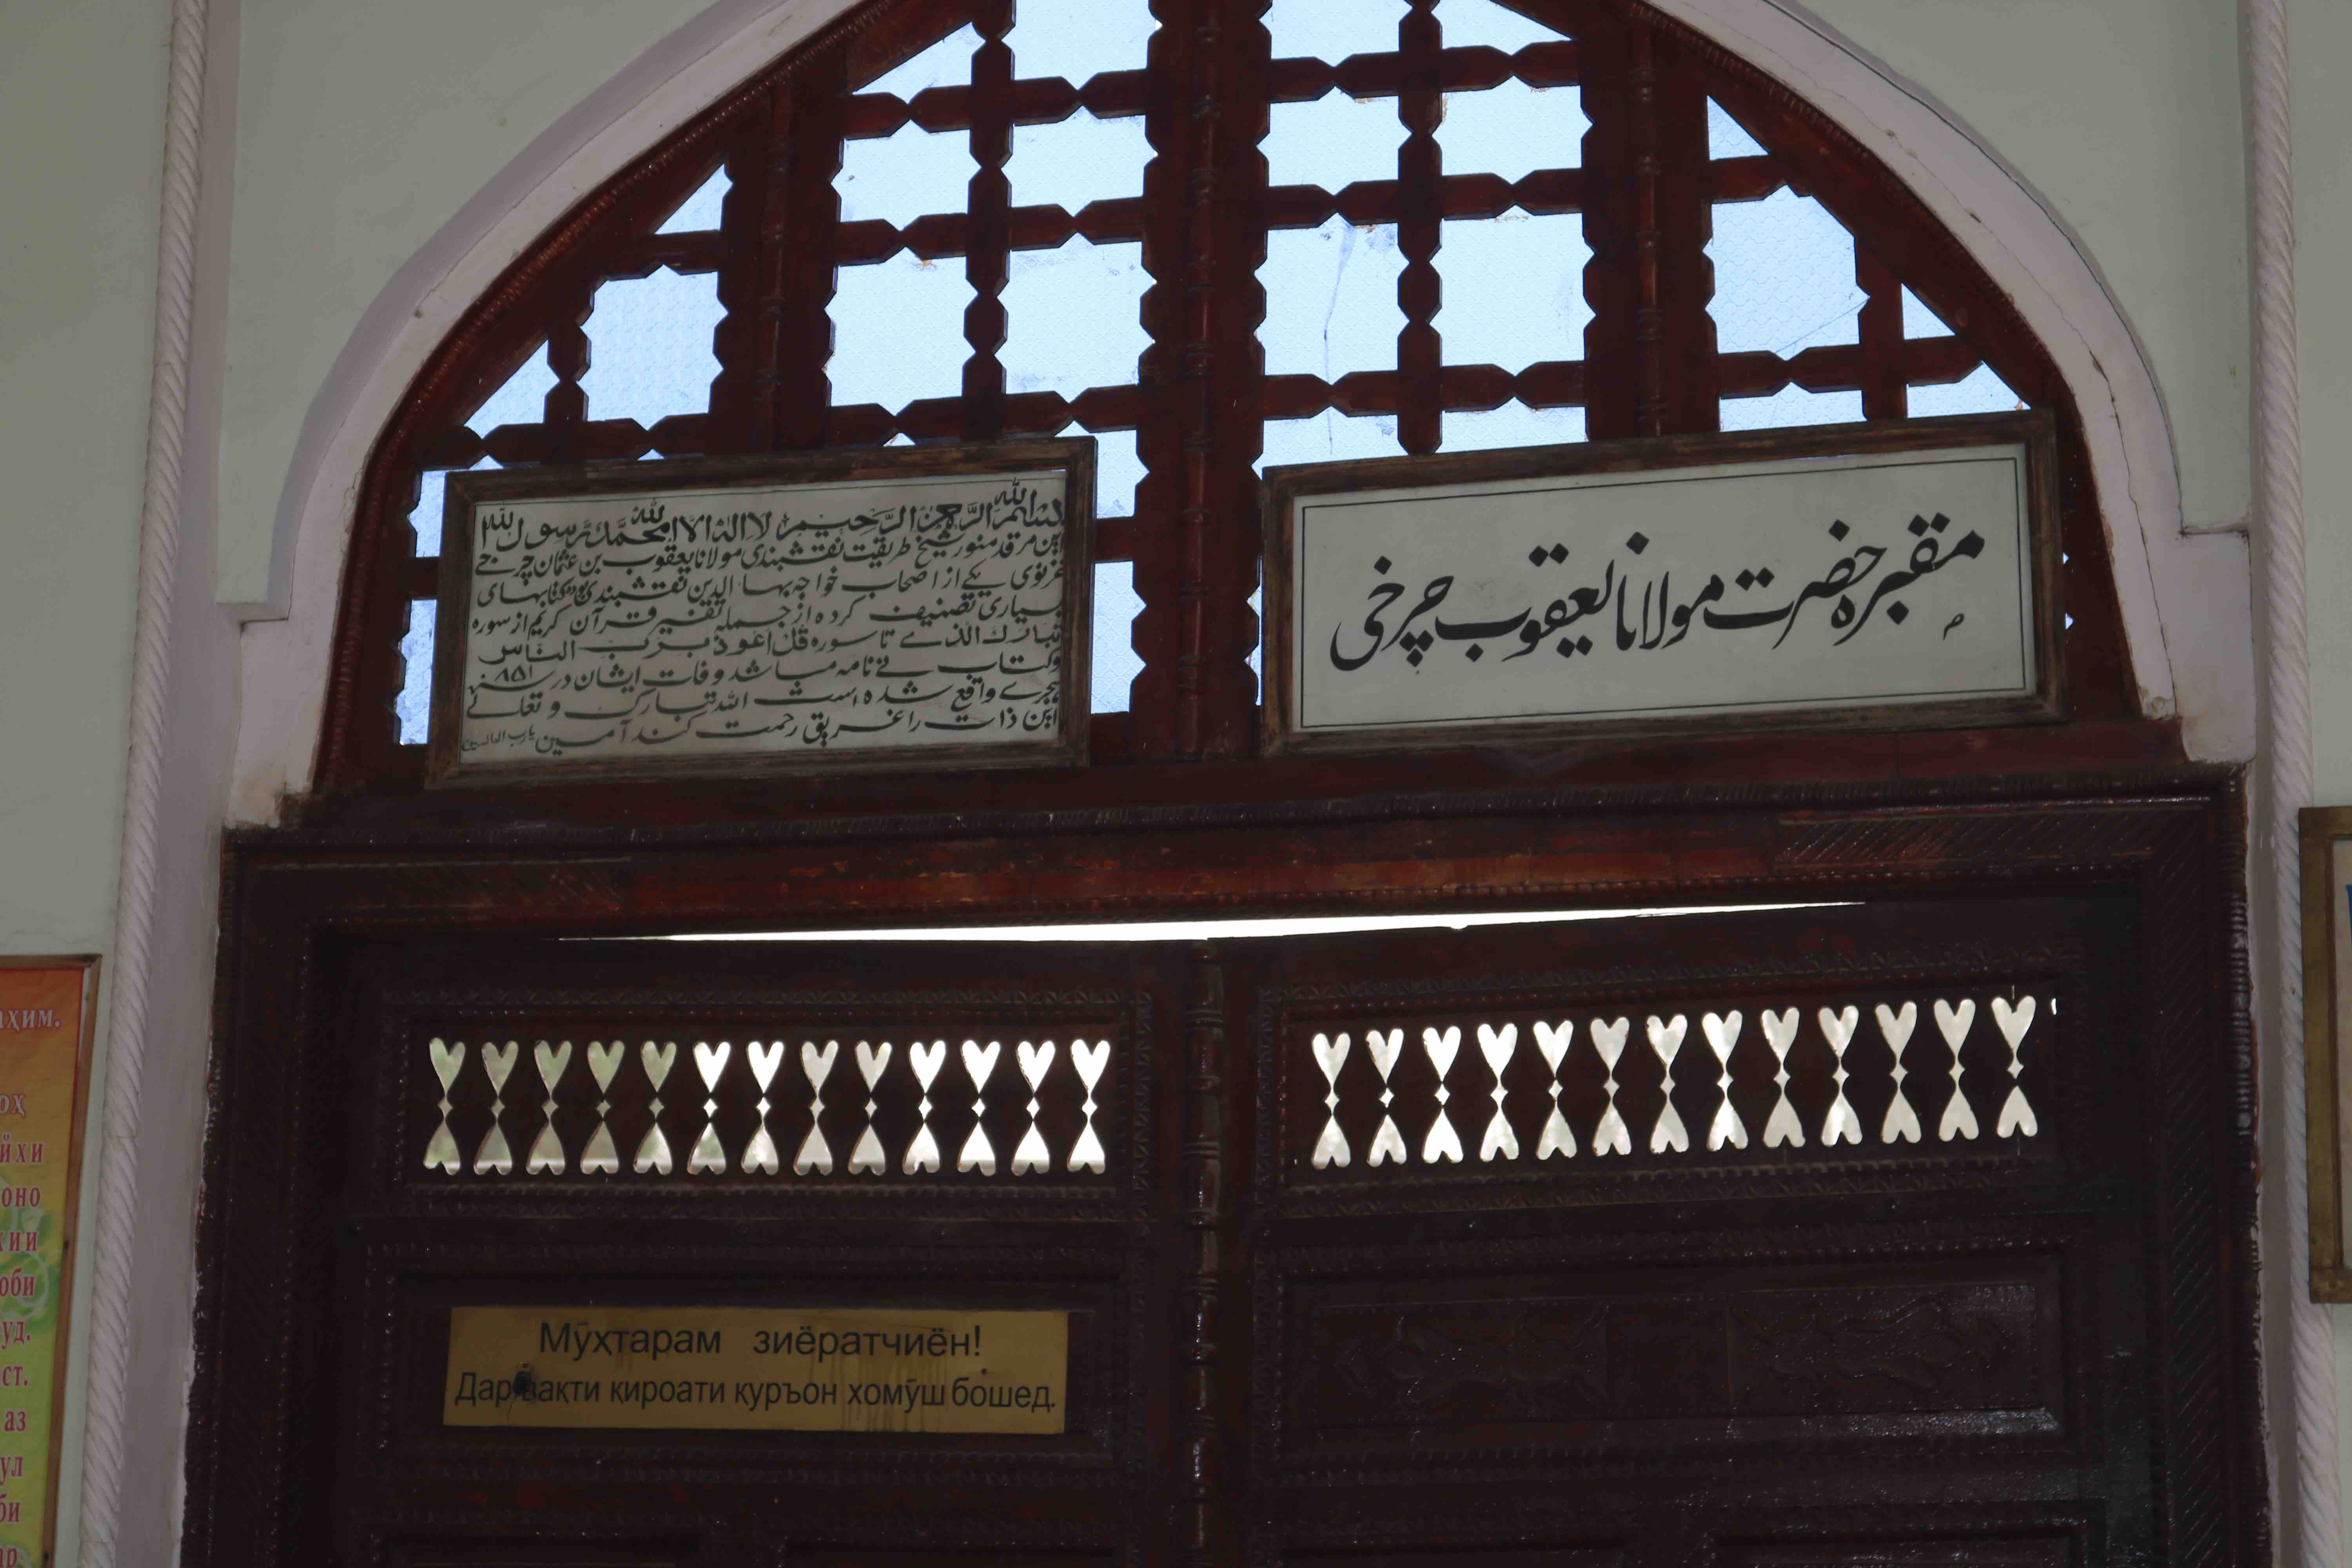 مقبره حضرت مولانا یعقوب چرخی
بسم الله الرحمن الرحیم لا اله الا الله محمد رسول الله
این مرقد منور شیخ طریقت نقشبندی مولانا یعقوب بن عثمان چرخی
غزنوی یکے از اصحاب خواجه بهاالدین نقشبندی بوده کتابهای
بسیاری تصنیف کرده از جمله تفسیر قرآن کریم از سوره
تبارك الذے تا سوره قل اعوذ برب الناس
وکتاب نے نامه میباشد وفات ایشان در سنه ۸۵۱
هجرے واقع شده است الله تبارک و تعالے
این ذات را غریق رحمت کند آمین یارب العالمین
Мӯҳтарам зиёратчиён!
Дар вақти қироати қуръон хомӯш бошед.
аҳим.
оҳ
йхи
оно
хии
оби
уд.
ст.
аз
ул
би
ар